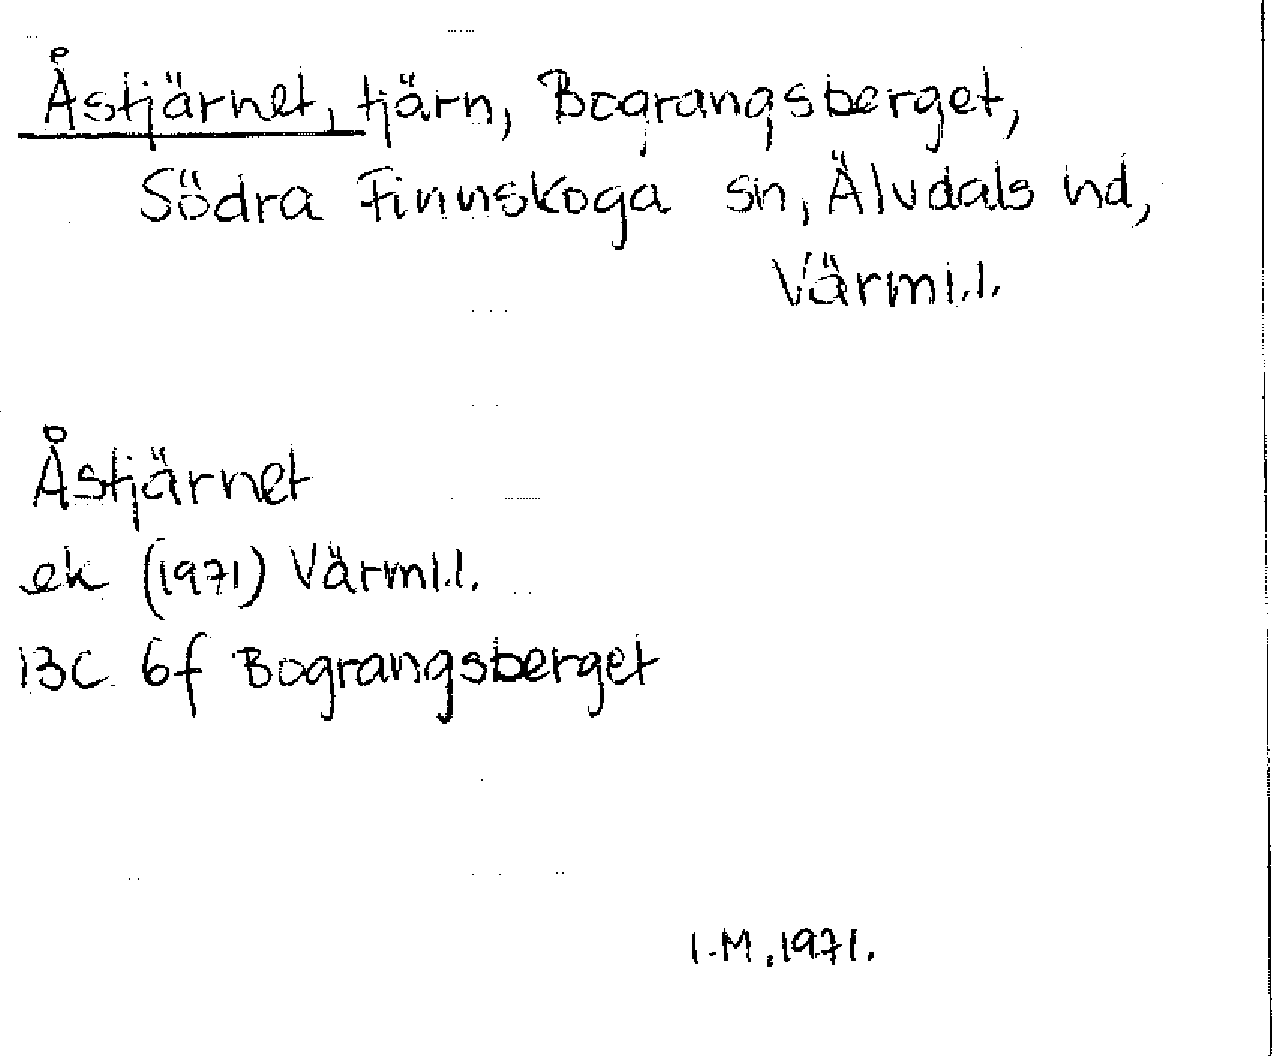 Åstjärnet, tjärn, Bograngsberget,
Södra Finnskoga sn, Älvdals hd,
Värml.l.
Åstjärnet
ek (1971) Värml.l.
13C 6f Bograngsberget
I.M. 1971.